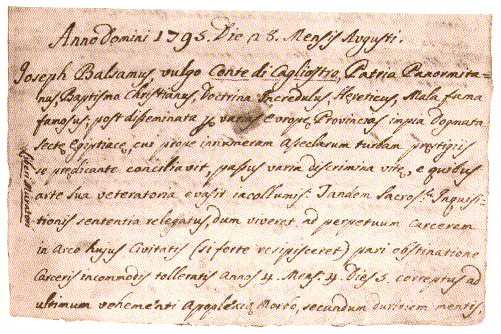 Anno Domini 1795. Die 28. Mensis Augusti.
Joseph Balsamus, vulgo Conte di Cagliostro, Patria Panormita=
nus Baptismo Christianus, Doctrina Incredulus, Hereticus, Mala fama
famosus; post diseminata p varias europe Provincias impia dogmata
secte Egiptiace, cui prope innumeram Aseclarum turbam prestigiis
se predicante conciliavit, passus varia discrimina vite, e quibus
arte sua veteratoria evasit incollumis: Tandem Sacros. Inquisi=
tionis sententia relegatus, dum viveret ad perpetuum carcerem
in Arce hujus Civitatis (si forte resipisceret) pari obstinatione
Carceris incommodis tolleratis Annos 4. Mens: 4 Dies 5. correptus ad
ultimum vehementi Applexie Morbo, secundum duritiem mentis